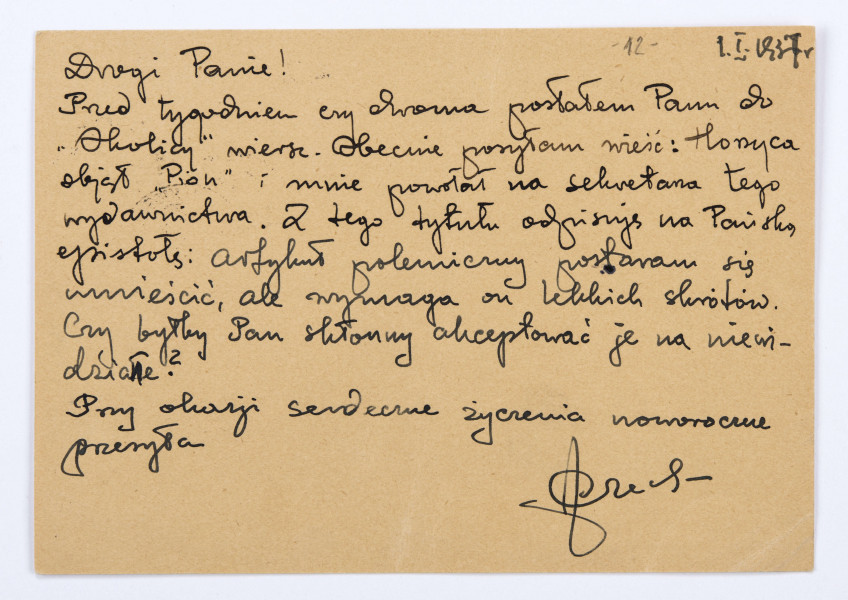 -12-
1.I.1937 r
Drogi Panie!
Przed tygodniem czy dwoma posłałem Panu do
"Okolicy" wiersz. Obecnie posyłam wieść: Horzyca
objął "Pion" i mnie powołał na sekretarza tego
wydawnictwa. Z tego tytułu odpisuję na Pańską
epistołę: artykuł polemiczny postaram się
umieścić, ale wymaga on lekkich skrótów.
Czy byłby Pan skłonny akceptować je na niewi-
dziane?
Przy okazji serdeczne życzenia noworoczne
przesyła